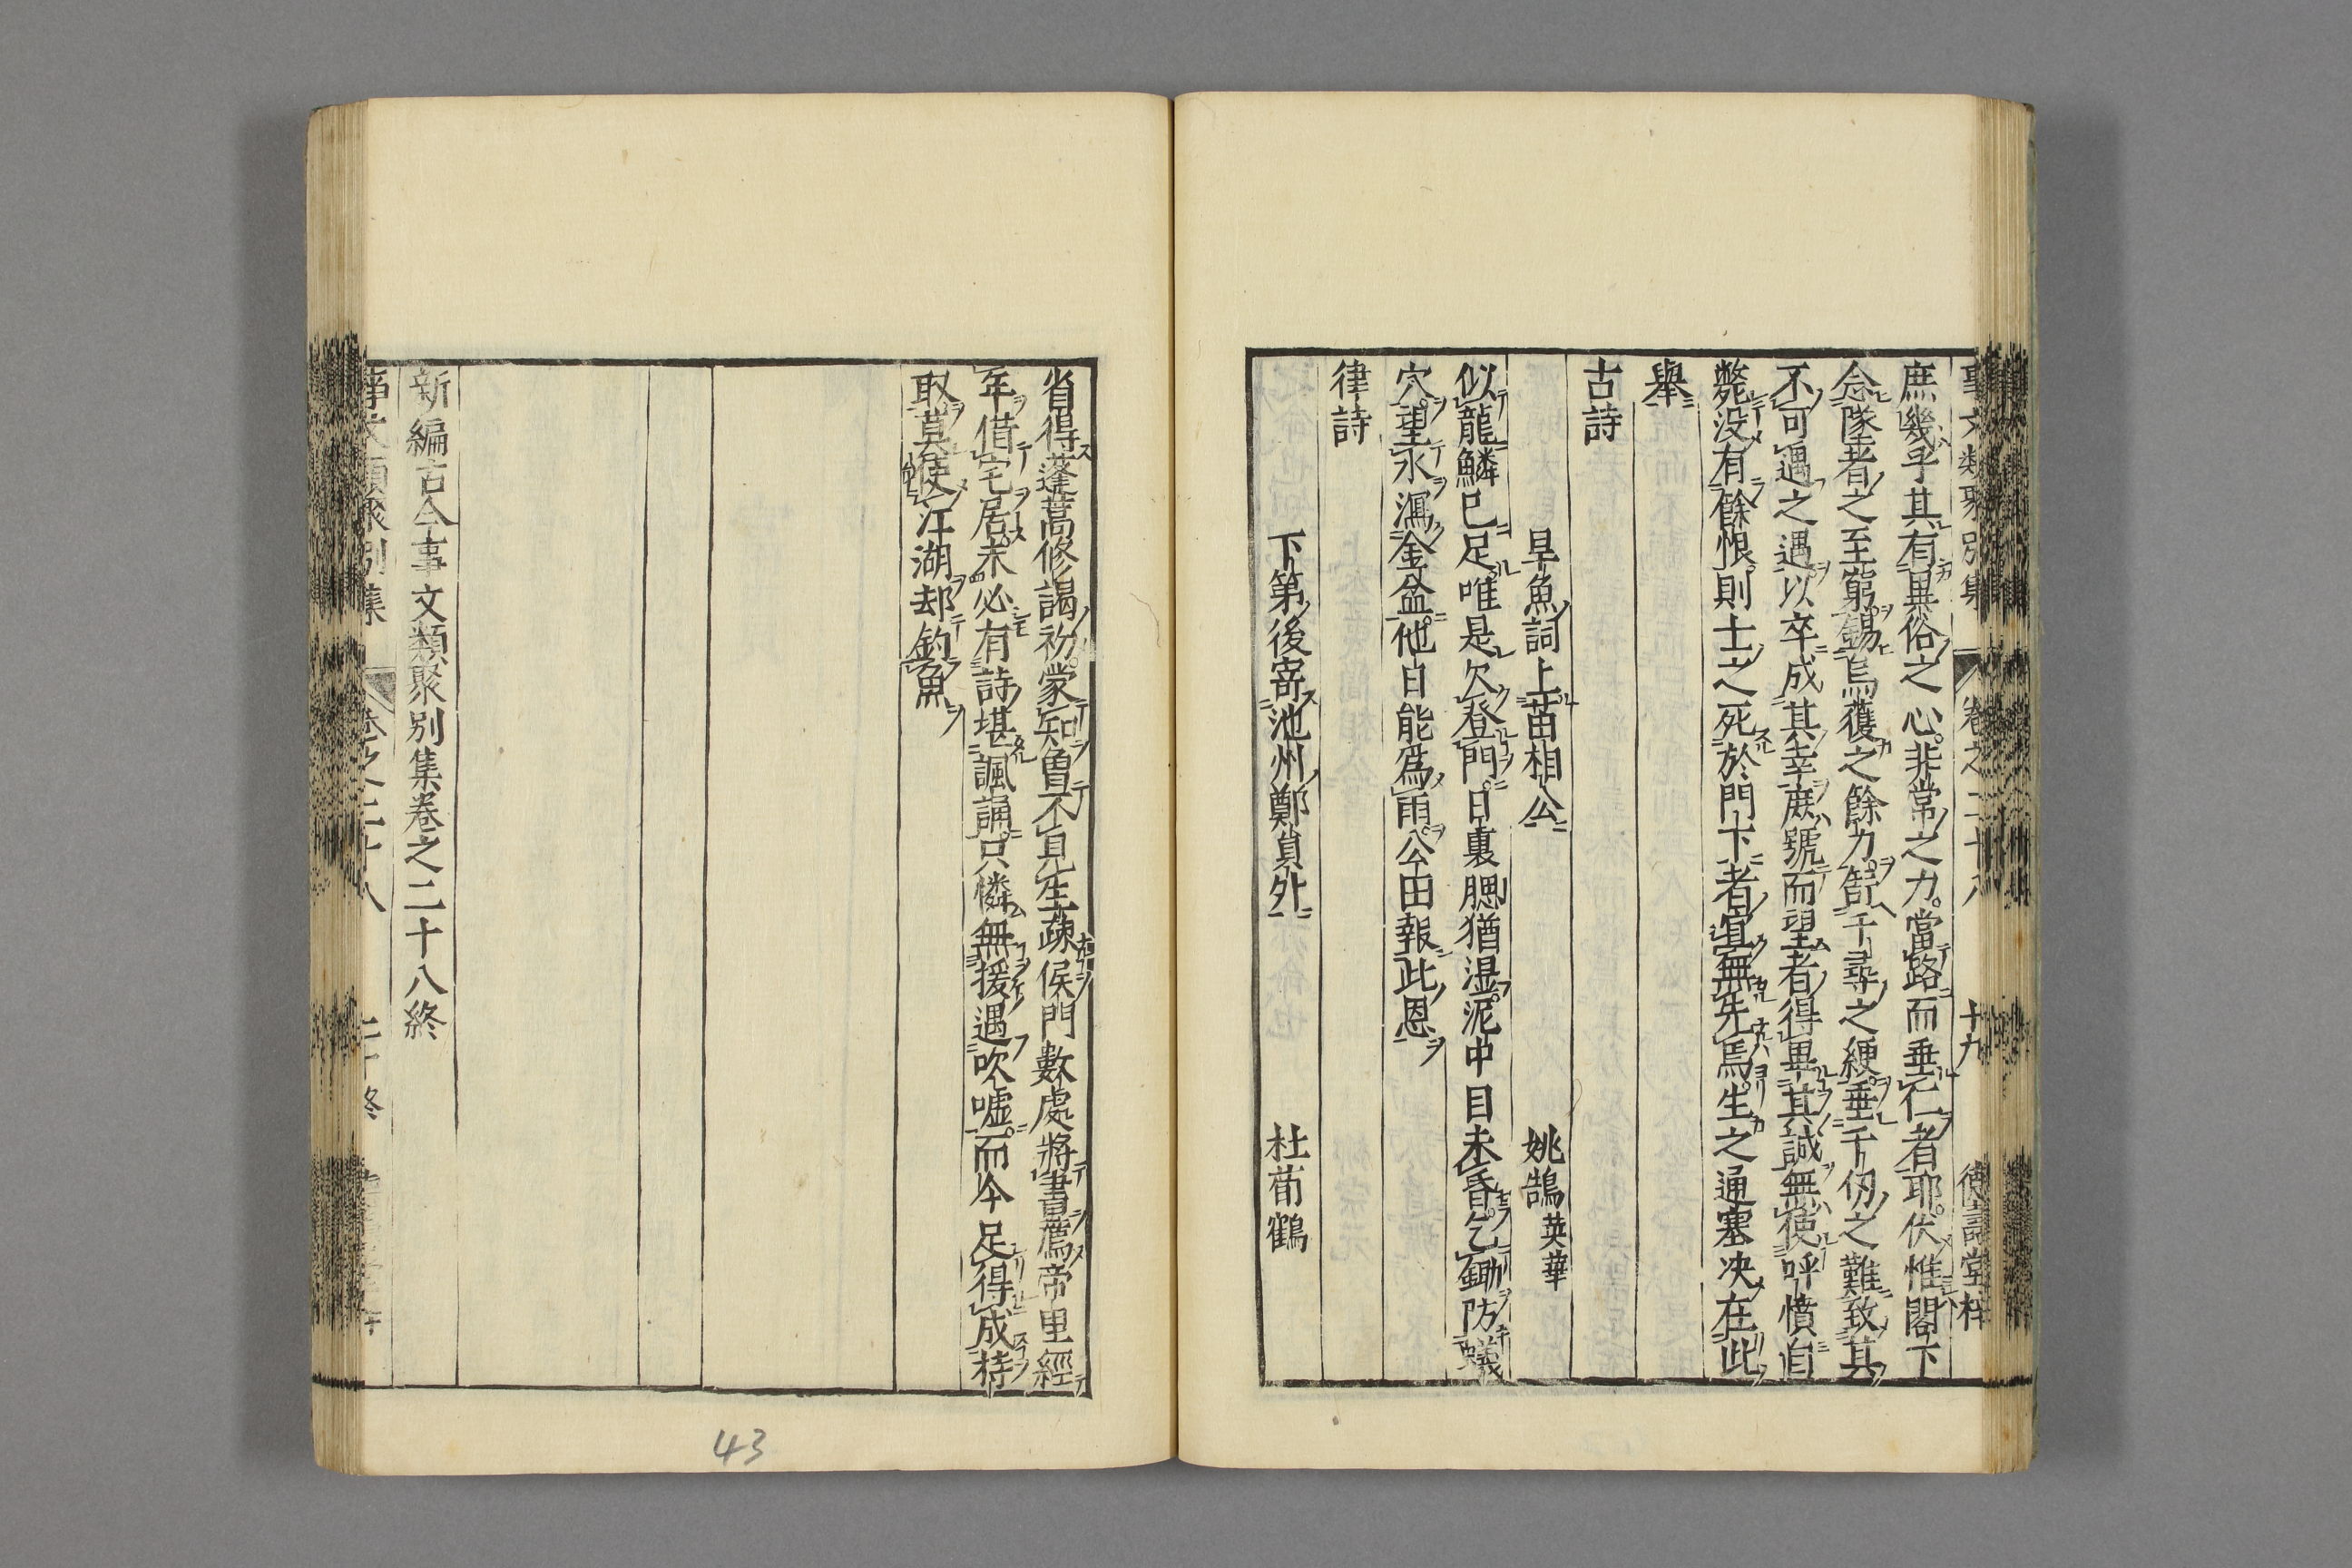 事文類聚別集 卷之二十八 十九 德壽堂梓
庶幾乎其有異俗之心非常之力當路而垂仁者耶伏惟閣下
念隊者之至窮錫烏獲之餘力舒千尋之綆垂千仞之難致其
不可遇之遇以卒成其幸庶號而望者得畢其誠無使呼憤自
斃没有餘恨則士之死於門下者宜無先焉生之通塞决在此
舉
古詩
旱魚詞上苗相公 姚鵠 英華
似龍鱗已足唯是欠登門日裏腮猶湿泥中目未昏乞鋤防蟻
穴望水瀉金盆他日能爲雨公田報此恩
律詩
下第後寄池州鄭員外 杜荀鶴
省得蓬蒿修謁初蒙知曽不見生疎侯門數處將書薦帝里經
年借宅居未必有詩堪諷誦只憐無援遇吹嘘而今足得成持
取莫使江湖却釣魚
新編古今事文類聚別集卷之二十八終
事文類聚別集 卷之二十八 二十終
43